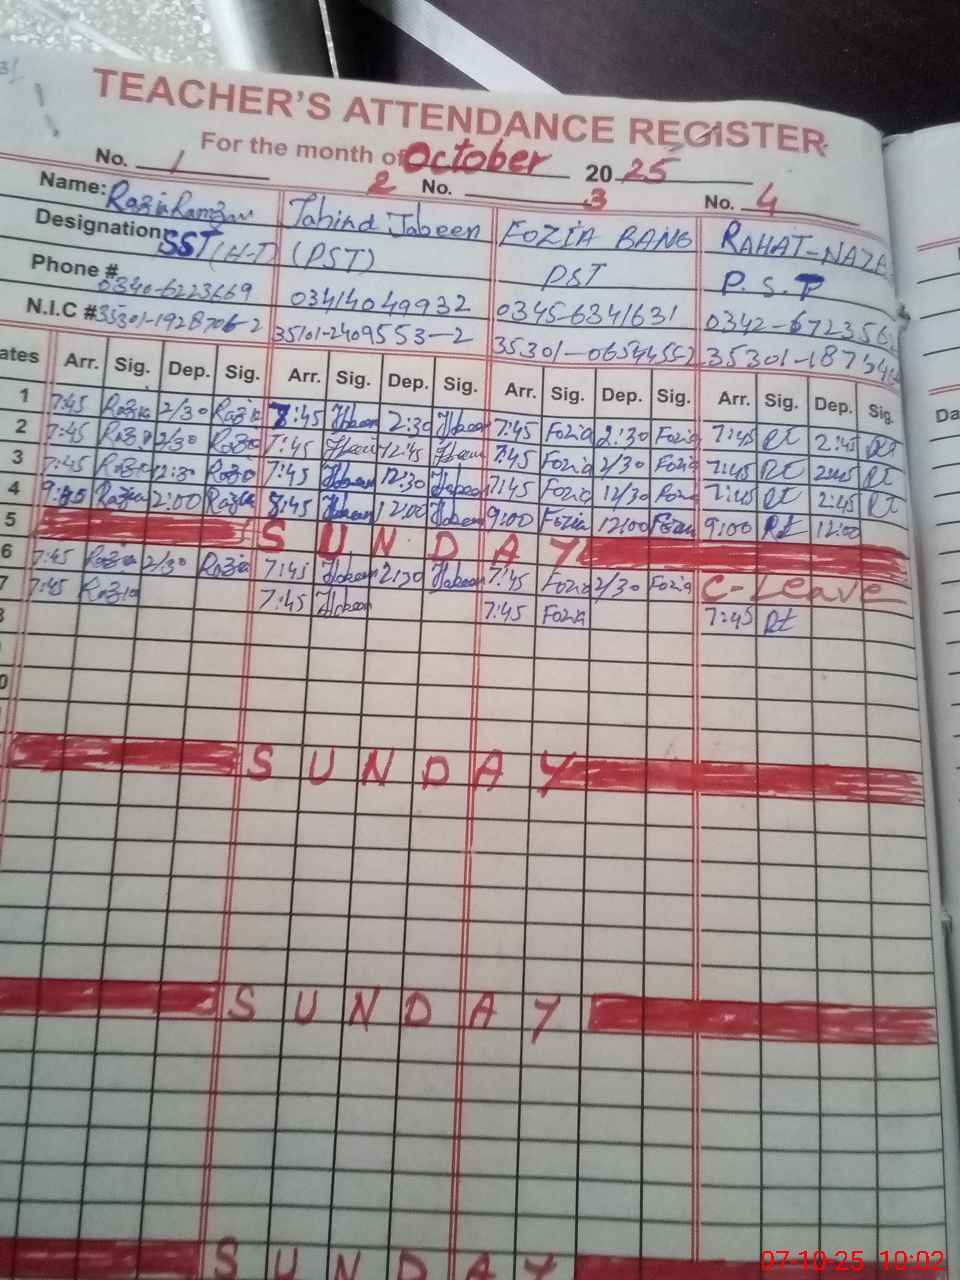 TEACHER'S ATTENDANCE REGISTER
For the month of October 2025
No. 1 2 No. 3 No. 4
Name: Razia Ramzan Tabind Jabeen FOZIA BANO RAHAT-NAZE
Designation: SST (H-T) (PST) PST P.S.T
Phone # 0340-6223669 03414049932 0345-6341631 0342-672356
N.I.C # 35301-1928706-2 35101-2409553-2 35301-0654455-2 35301-18754
ates Arr. Sig. Dep. Sig. Arr. Sig. Dep. Sig. Arr. Sig. Dep. Sig. Arr. Sig. Dep. Sig.
1 7:45 Razia 2/30 Razia 7:45 Jabeen 2:30 Jabeen 7:45 Fozia 2:30 Fozia 7:45 Rt 2:45 Rt
2 7:45 Razia 2/30 Razia 7:45 Jabeen 12:45 Jabeen 7:45 Fozia 2/30 Fozia 7:45 Rt 2:45 Rt
3 7:45 Razia 12:30 Razia 7:45 Jabeen 12:30 Jabeen 7:45 Fozia 12/30 Fozia 7:45 Rt 2:45 Rt
4 Razia 2:00 Razia 8:45 Jabeen 12:00 Jabeen 9:00 Fozia 12:00 Fozia 9:00 Rt 12:00
5 SUNDAY
6 7:45 Razia 2/30 Razia 7:45 Jabeen 2:30 Jabeen 7:45 Fozia 2/30 Fozia C-Leave
7 7:45 Razia 7:45 Jabeen 7:45 Fozia 7:45 Rt
SUNDAY
SUNDAY
SUNDAY
Da
07-10-25 10:02